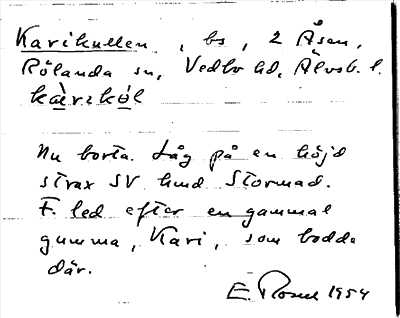 Karikullen, bs, 2 Åsen,
Rölanda sn, Vedbo hd, Älvsb. l.
kàrikól
Nu borta. Låg på en höjd
strax SV
F. led efter en gammal
gumma, Kari, som bodde
där.
E. Rosell 1954